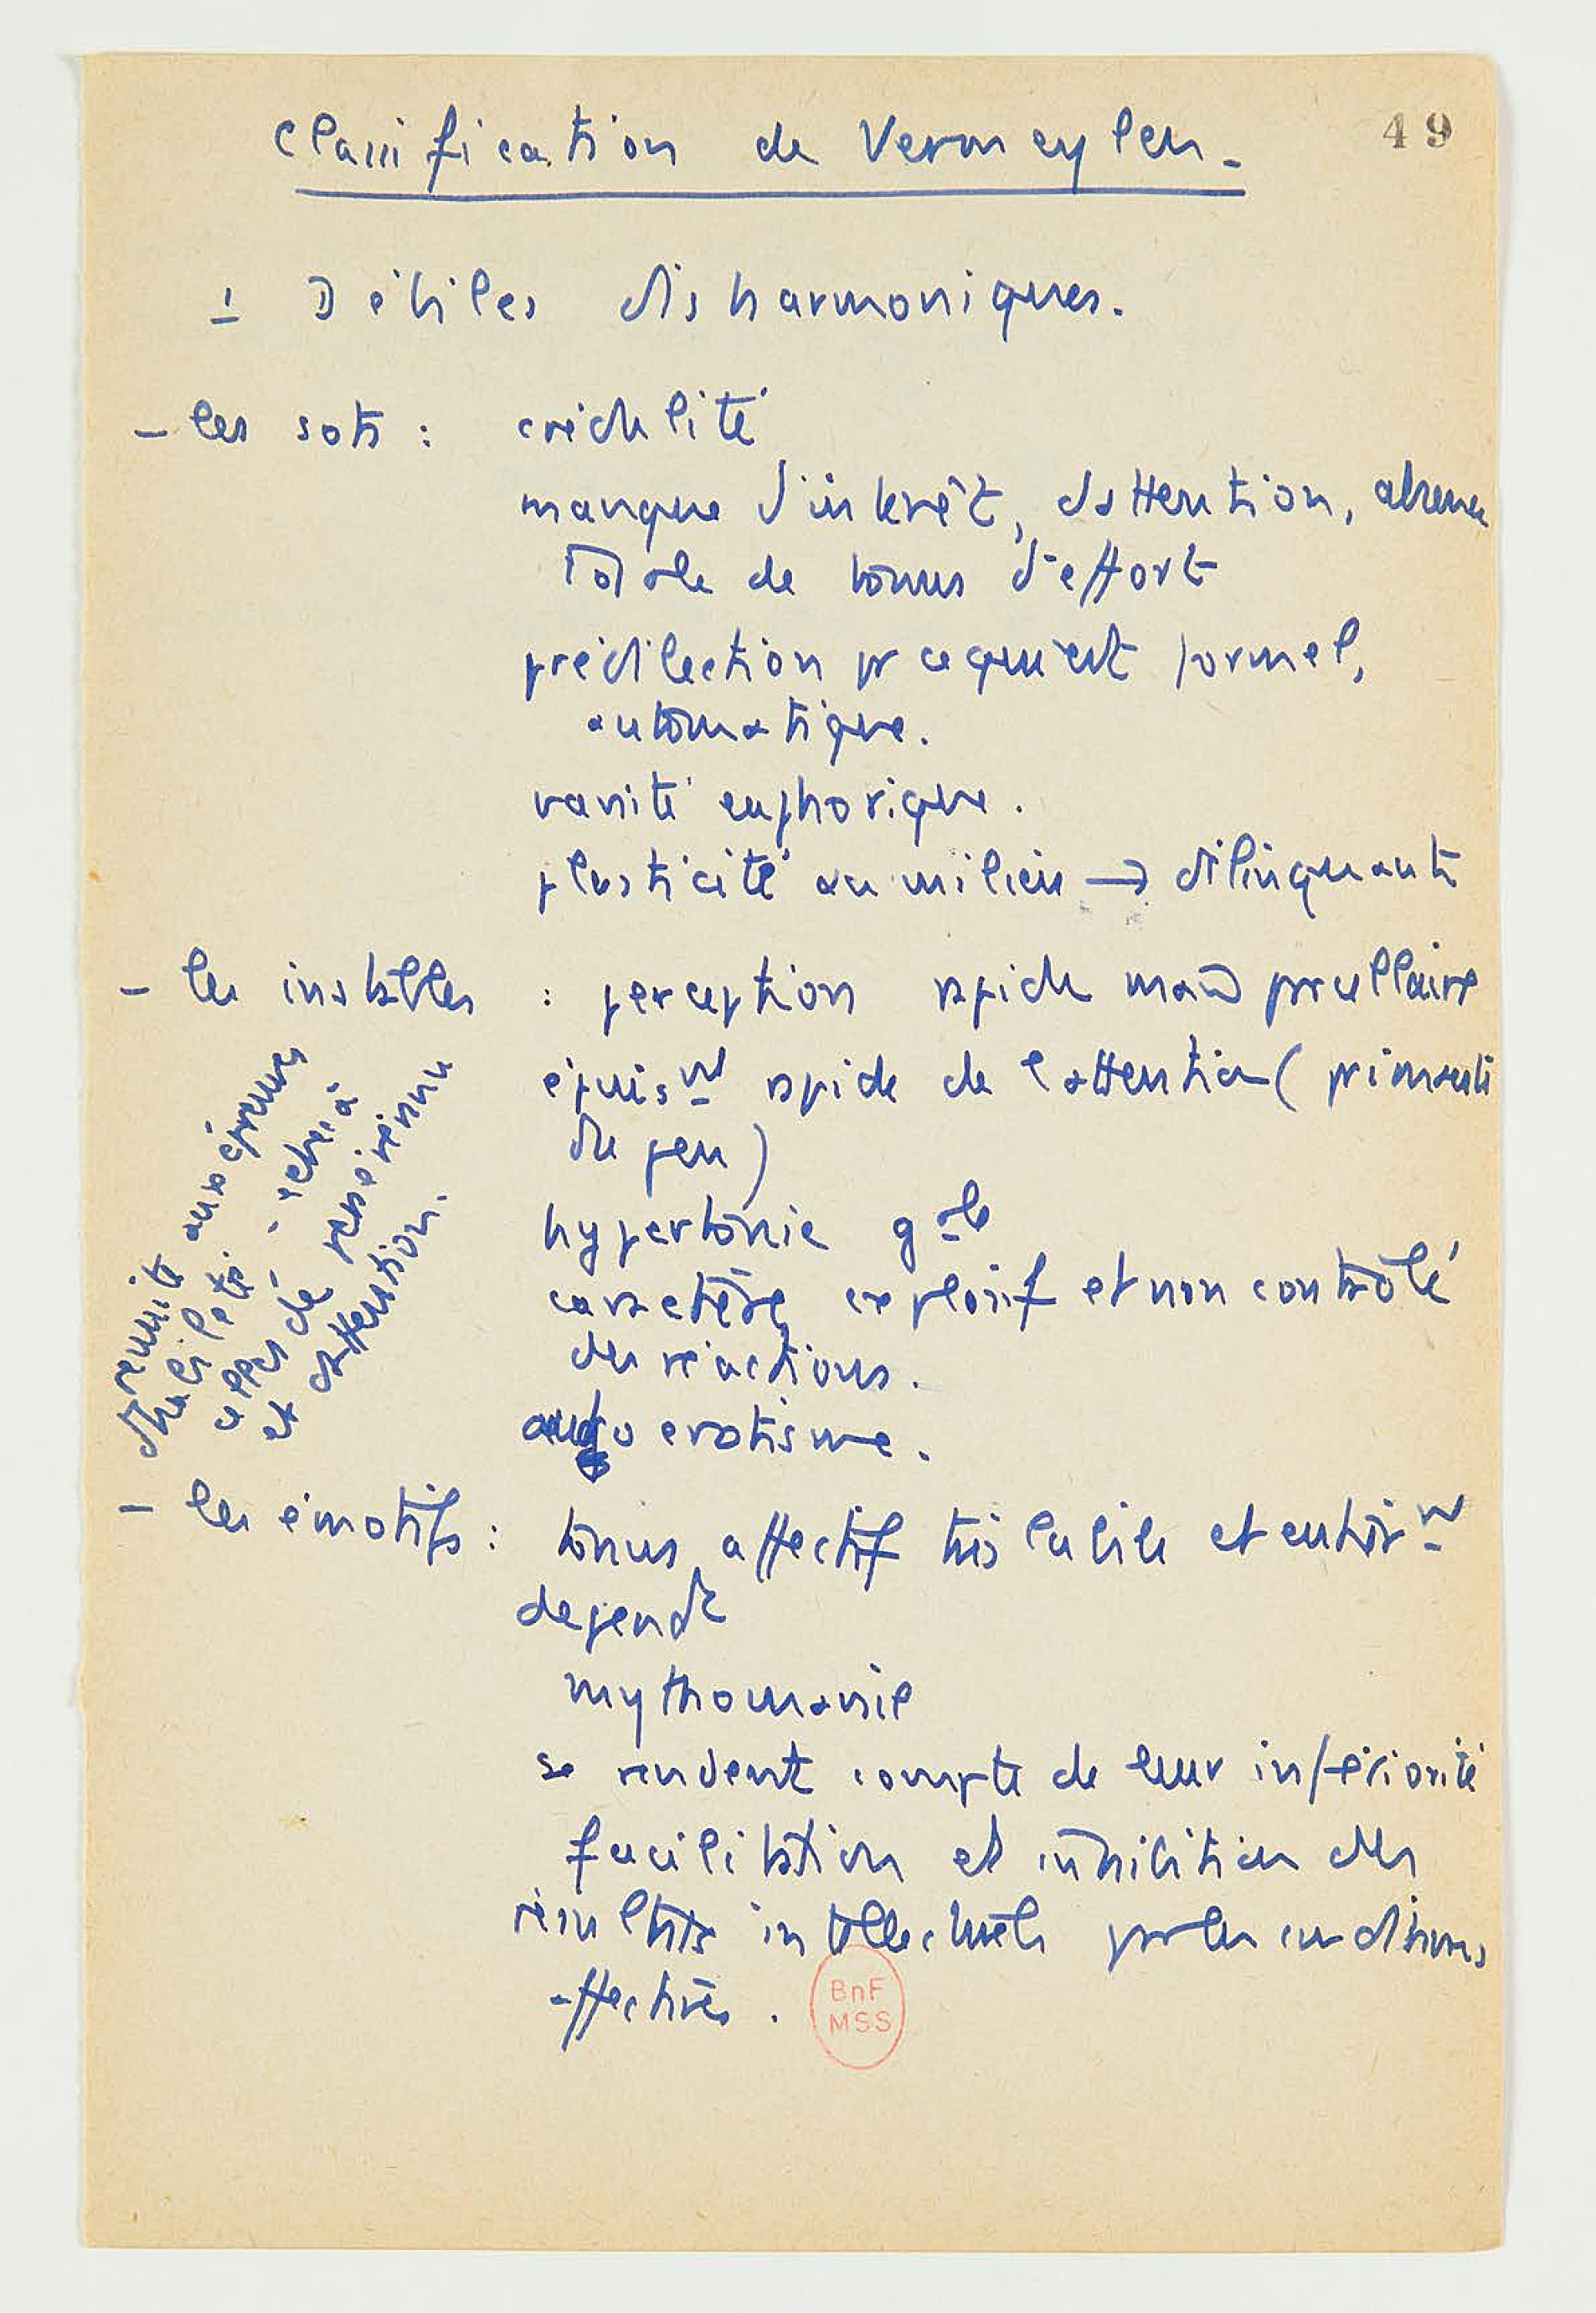 49
Classification de Vermeylen.
1 Débiles disharmoniques.
- les sots : crédulité
manque d'intérêt, d'attention, absence
totale de tonus d'effort
prédilection pr ce qui est formel,
automatique.
vanité euphorique.
plasticité au milieu → délinquants
- les instables : perception rapide mais parcellaire
épuist rapide de l'attention (
du jeu)
hypertonie gale
caractère explosif et non contrôlé
des réactions.
auto erotisme.
aux épreuves
d'habileté
appel de
et d'attention.
- les émotifs : tonus affectif très labile et entièrt
dependt
mythomanie
se rendent compte de leur infériorité
facilitation et inhibition des
résultats intellectuels par les conditions
affectives.
BnF
MSS